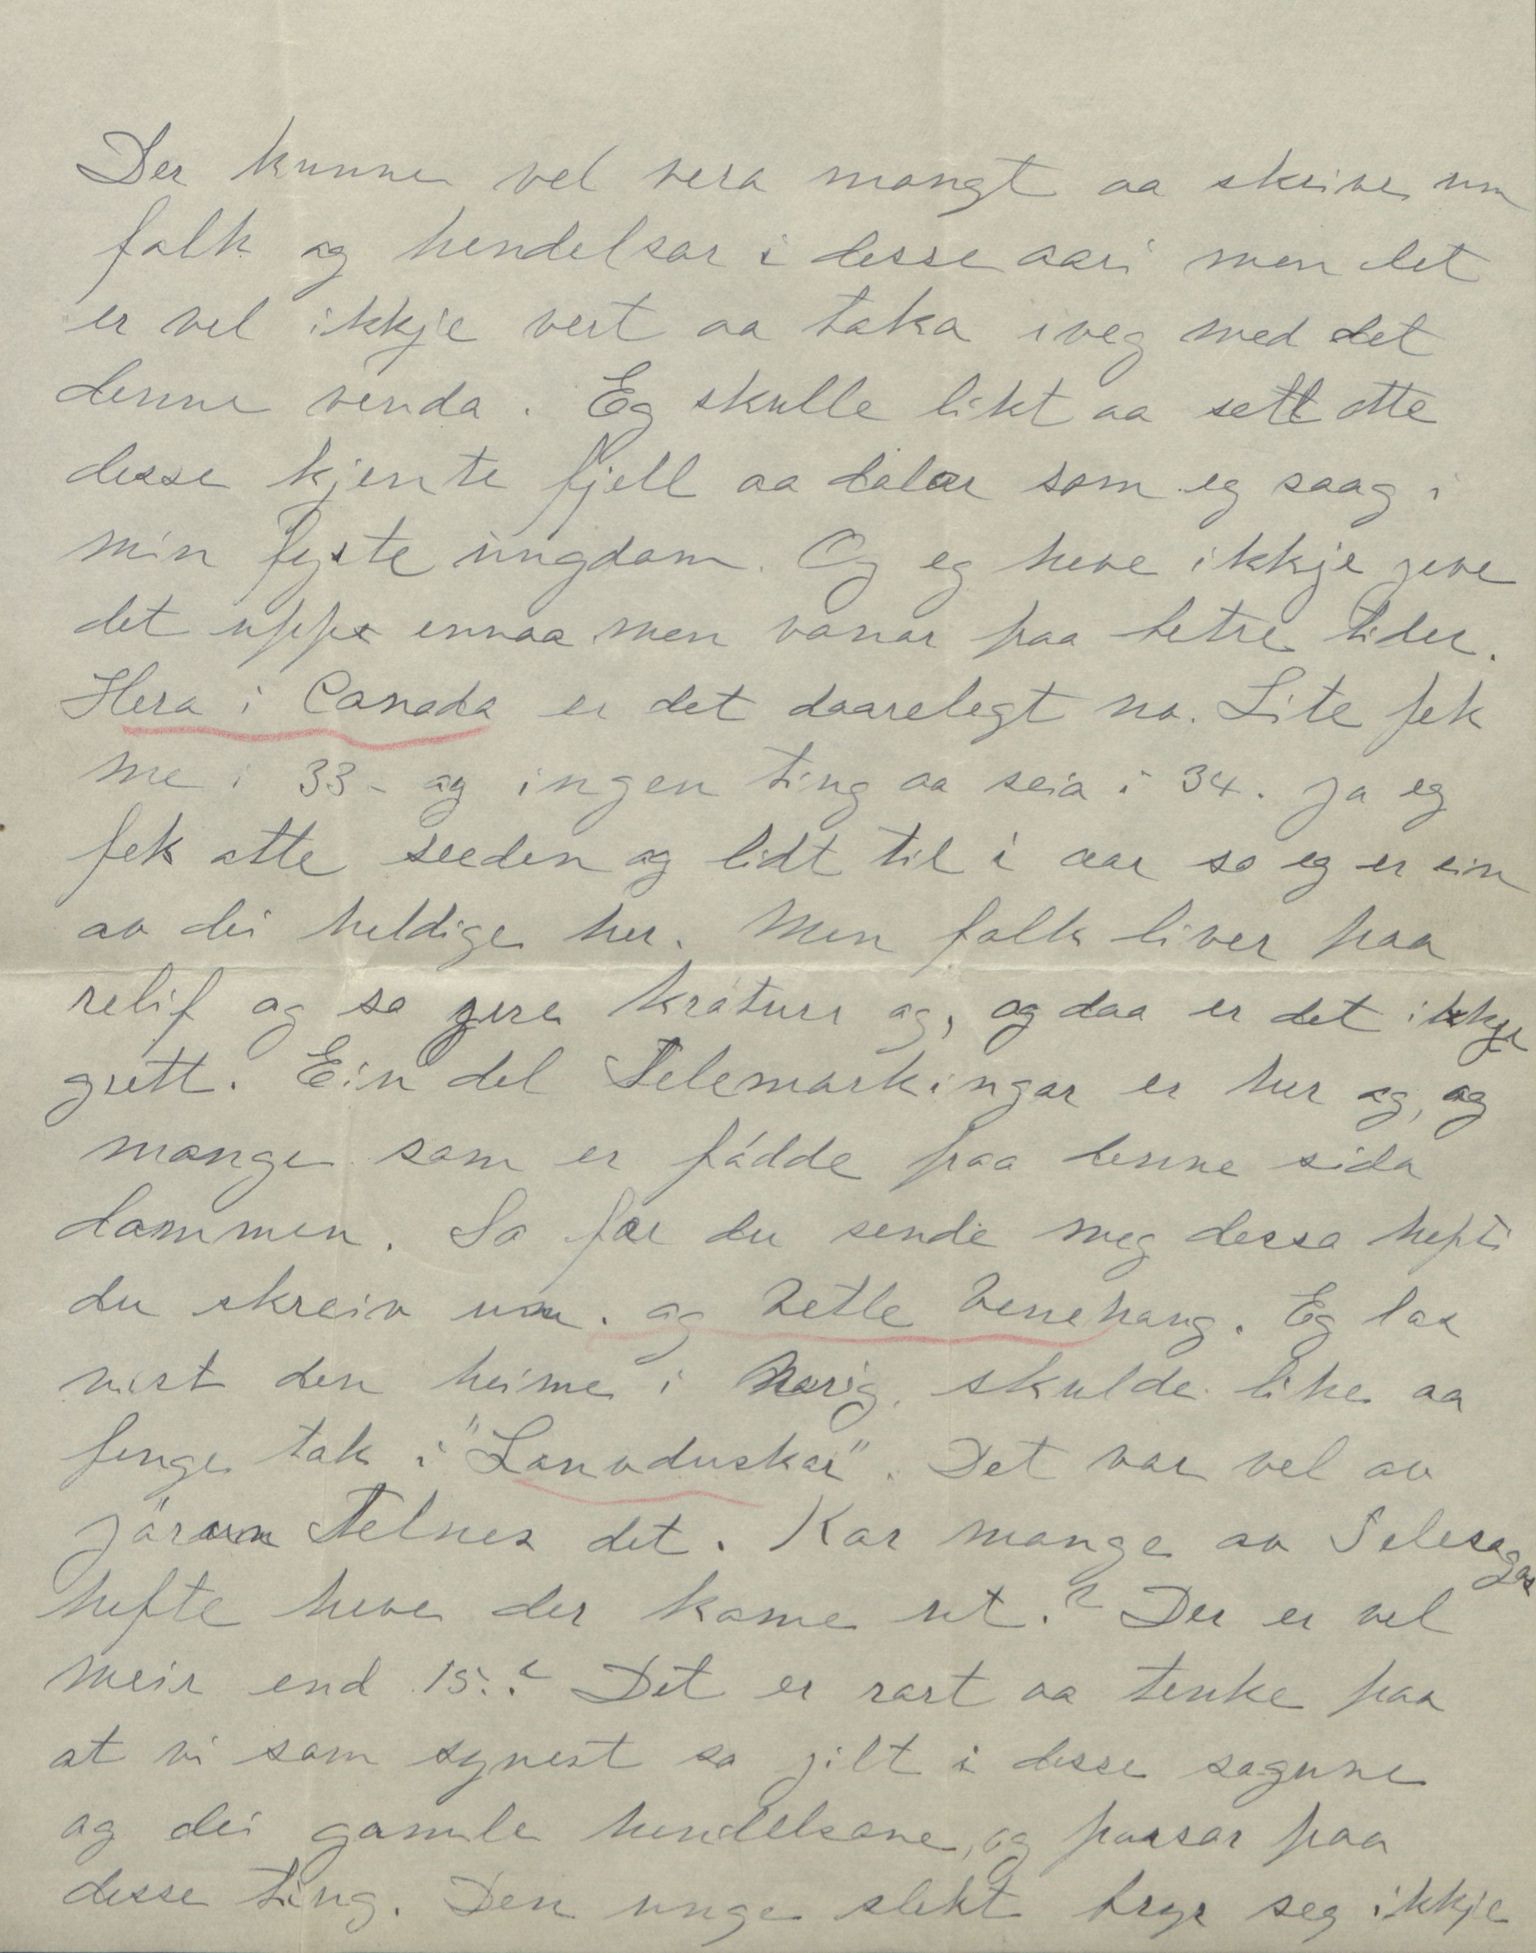 Der kunne vel vera mangt aa skrive um
folk og hendelsar i desse aari men det
er vel ikkje vert aa taka iveg med det
denne venda. Eg skulle likt aa sett atte
desse kjente fjell aa dalar som eg saag i
min fyste ungdom. Og eg heve ikkje jeve
det upp ennaa men vonar paa betre tider.
Hera i Canada er det daarelegt no. Lite fek
me i 33 - og ingen ting aa seia i 34. Ja eg
fek atte seeden og lidt til i aar so eg er ein
av dei heldige her. Men folk liver paa
relif og so jere kraturi og, og daa er det ikkje
gutt. Ein del Telemarkingar er her og, og
mange som er fádde paa denne sida
dammen. So far du sende meg dessa hefti
du skreiv um. og Vetle Venehaug. Eg las
vist den heime i Norig. skulde like aa
fenge tak i "Lauvduskar". Det var vel av
Jörun Telnes det. Kor mange av Telesoga
hefte heve der kome ut.? Der er vel
meir end 15.? Det er rart aa tenke paa
at vi som synest so jilt i desse sogune
og dei gamle hendelsane, og passar paa
desse ting. Den unge slekt bryr seg ikkje